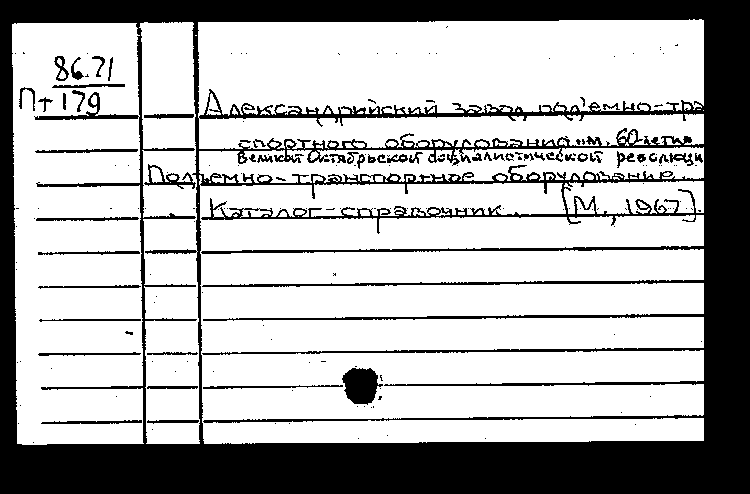 86.71
Пт 179
Александрийский завод под'емно-тра
спортного оборудования им. 60-летия
Великой Октябрьской социалистической революци
Подъемно-транспортное оборудование.
Каталог-справочник. [М., 1967].